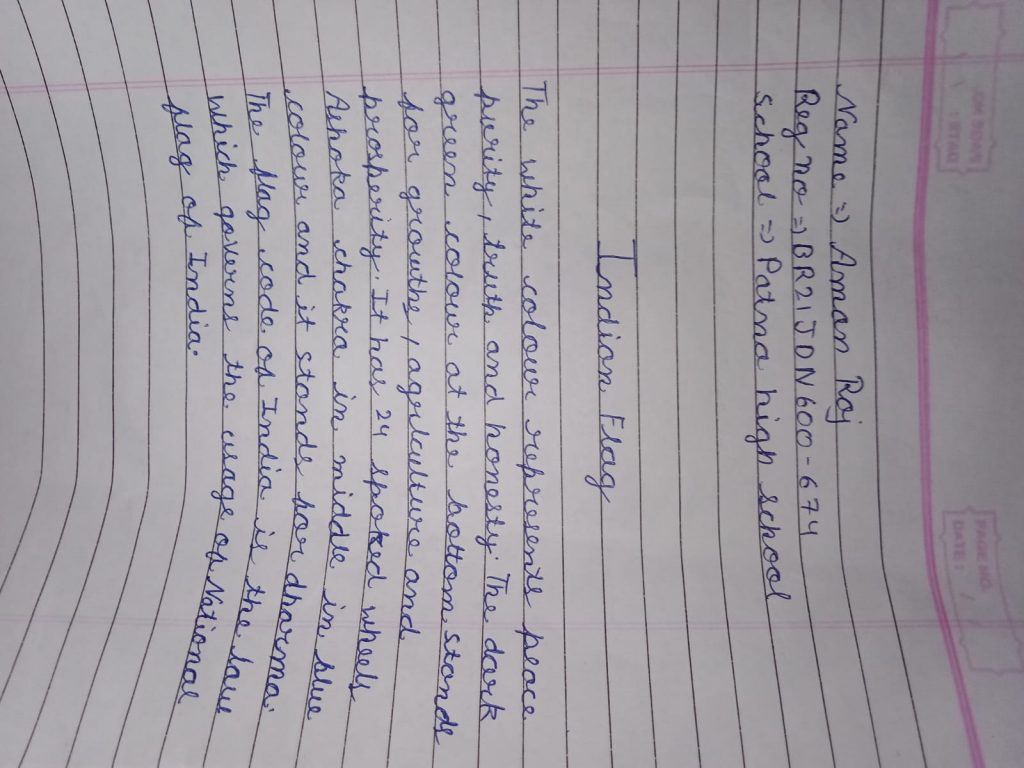 PAGE NO.
DATE: / /
Name => Aman Raj
Reg no => BR21JDN600-674
School => Patna high school
Indian Flag
The white colour represents peace
purity, truth and honesty. The dark
green colour at the bottom stands
for grouths, agrlculture and
prosperity. It has 24 spoked wheels
Ashoka chakra in middle in blue
colour and it stands for dharma.
The flag code of India is the law
which governs the usage of National
flag of India.